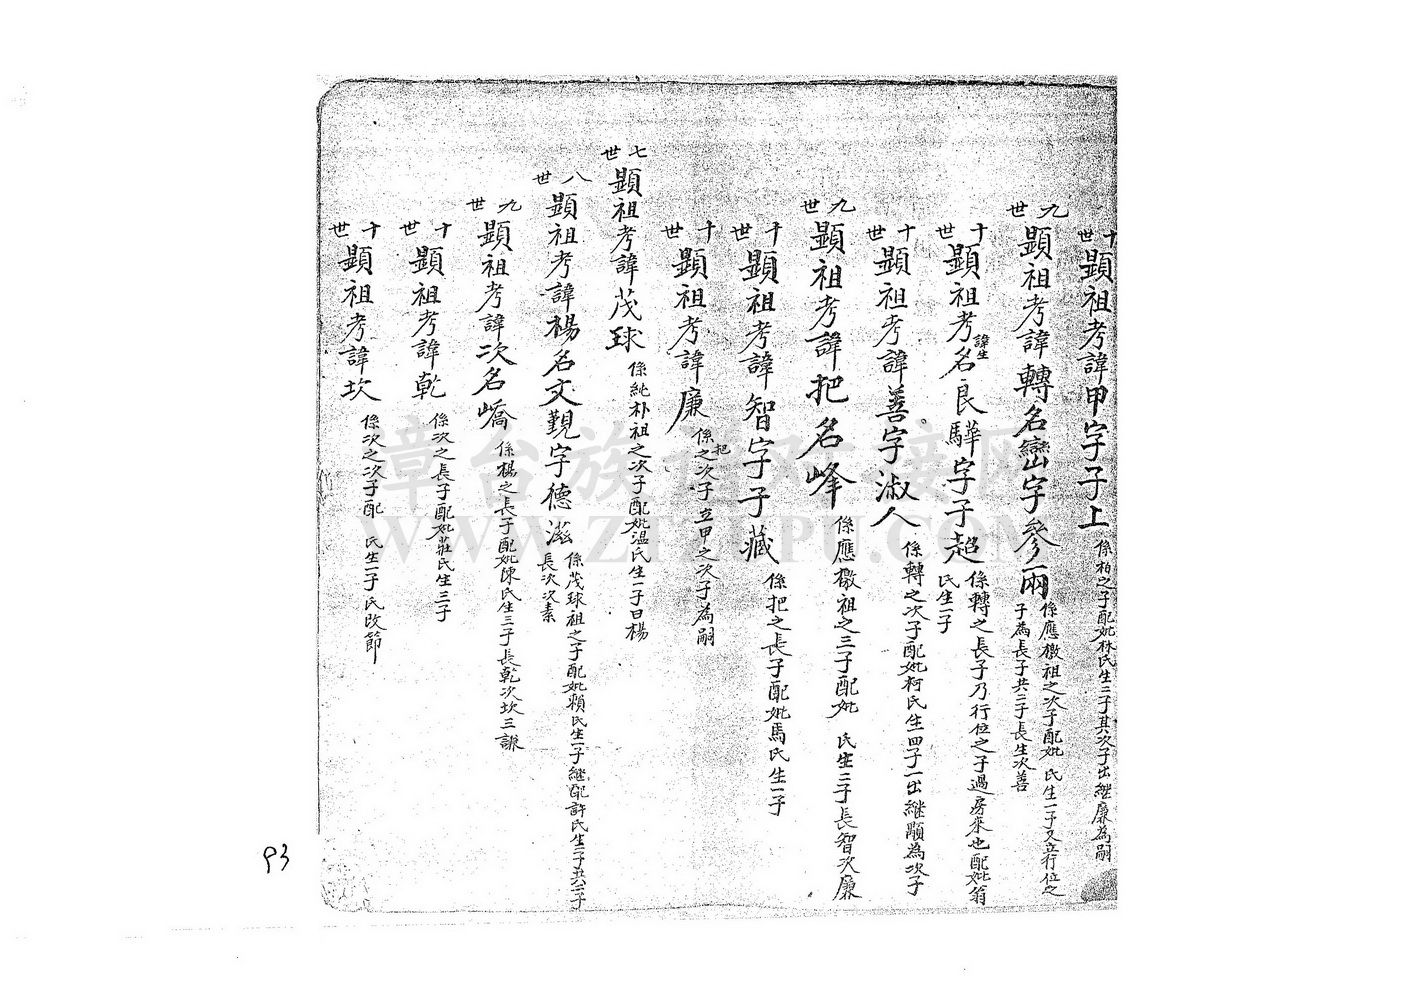 十世 顯祖考諱甲字子上 係柏之子配妣林氏生二子其次子出繼廉為嗣
九世 顯祖考諱轉名巒字參兩 係應檄祖之次子配妣 氏生一子又立行位之
子為長子共二子長生次善
十世 顯祖考諱生名良驊字子超 係轉之長子乃行位之子過房來也配妣翁
氏生一子
十世 顯祖考諱善字淑人 係轉之次子配妣柯氏生四子一出繼顒為次子
九世 顯祖考諱把名峰 係應檄祖之三子配妣 氏生二子長智次廉
十世 顯祖考諱智字子藏 係把之長子配妣馬氏生一子
十世 顯祖考諱廉 係把之次子立甲之次子為嗣
七世 顯祖考諱茂球 係純朴祖之次子配妣温氏生一子曰楊
八世 顯祖考諱楊名文觀字德滋 係茂球祖之子配妣賴氏生一子繼配許氏生二子共三子
長次次素
九世 顯祖考諱次名嶠 係楊之長子配妣陳氏生三子長乾次坎三謙
十世 顯祖考諱乾 係次之長子配妣莊氏生三子
十世 顯祖考諱坎 係次之次子配 氏生一子氏改節
93
章台族谱对接网
WWW.ZTZUPU.COM